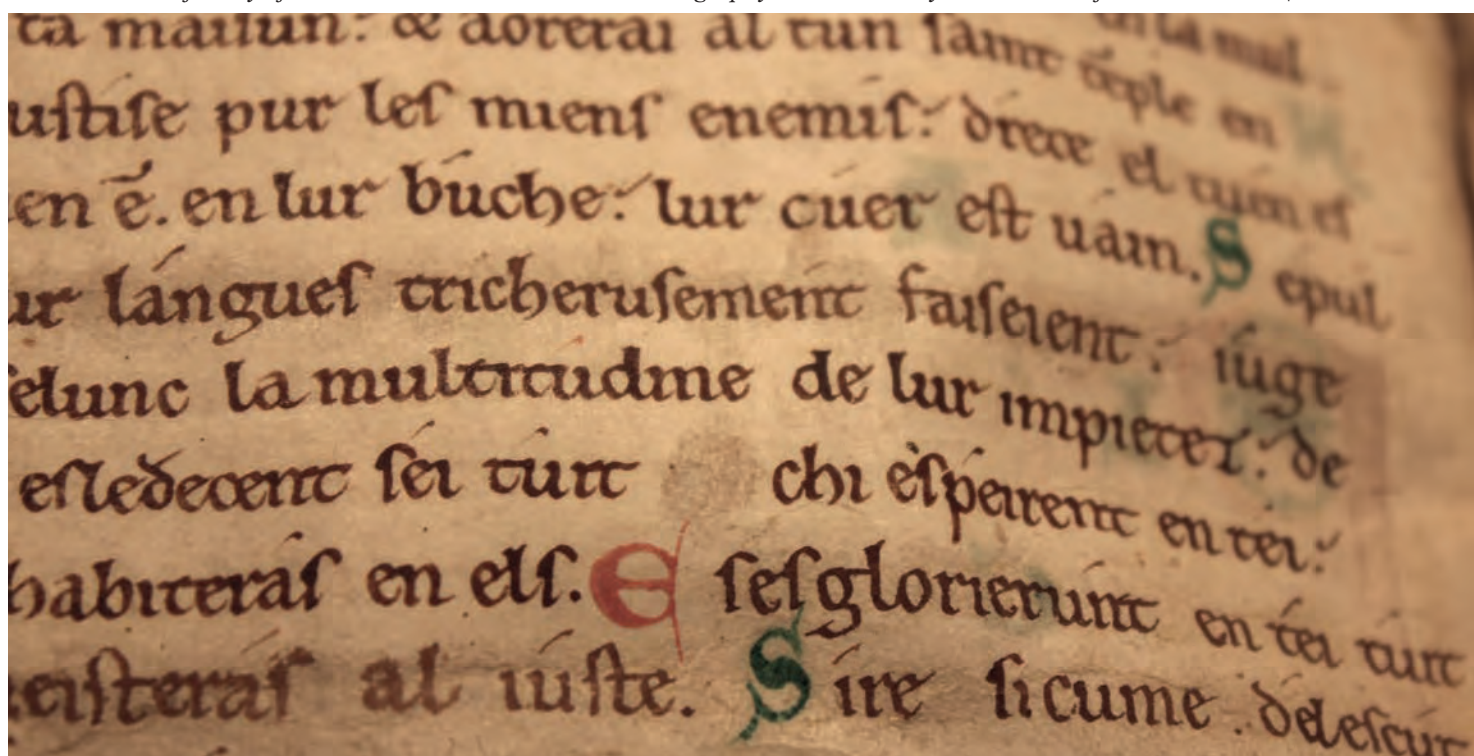 ta maiſun: & aorerai al tun ſaint tēple en
uſtiſe pur leſ mienſ enemiſ: drece el tuen eſ
en ē. en lur buche: lur cuer eſt uain. S epul
ur langueſ tricheruſement faiſeient: iuge
ſelunc la multitudine de lur impieteſ: de
eſledecent ſei tuit chi eſpeirent en tei:
habiteraſ en elſ. E ſeſglorierunt en tei tuit
eiſteraſ al iuſte. S ire ſicume deleſcut